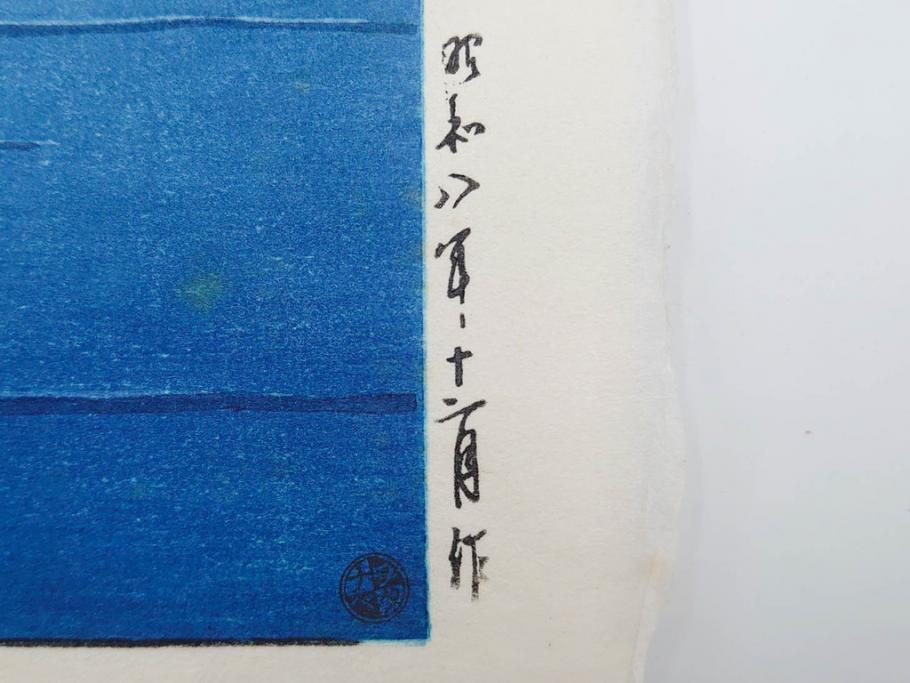 昭和八年十二月作